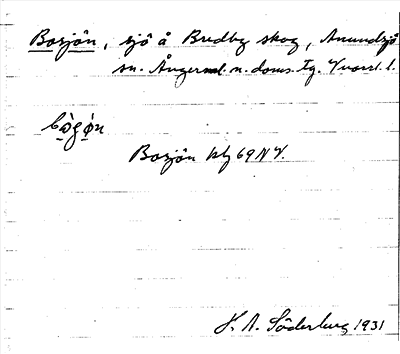 Bosjön, sjö å Bredby skog, Anundsjö
sn. Ångerml. n. doms. tg. Vnorrl. l.
bògo̩n
Bosjön kbg 69 NV.
H. A. Söderberg 1931